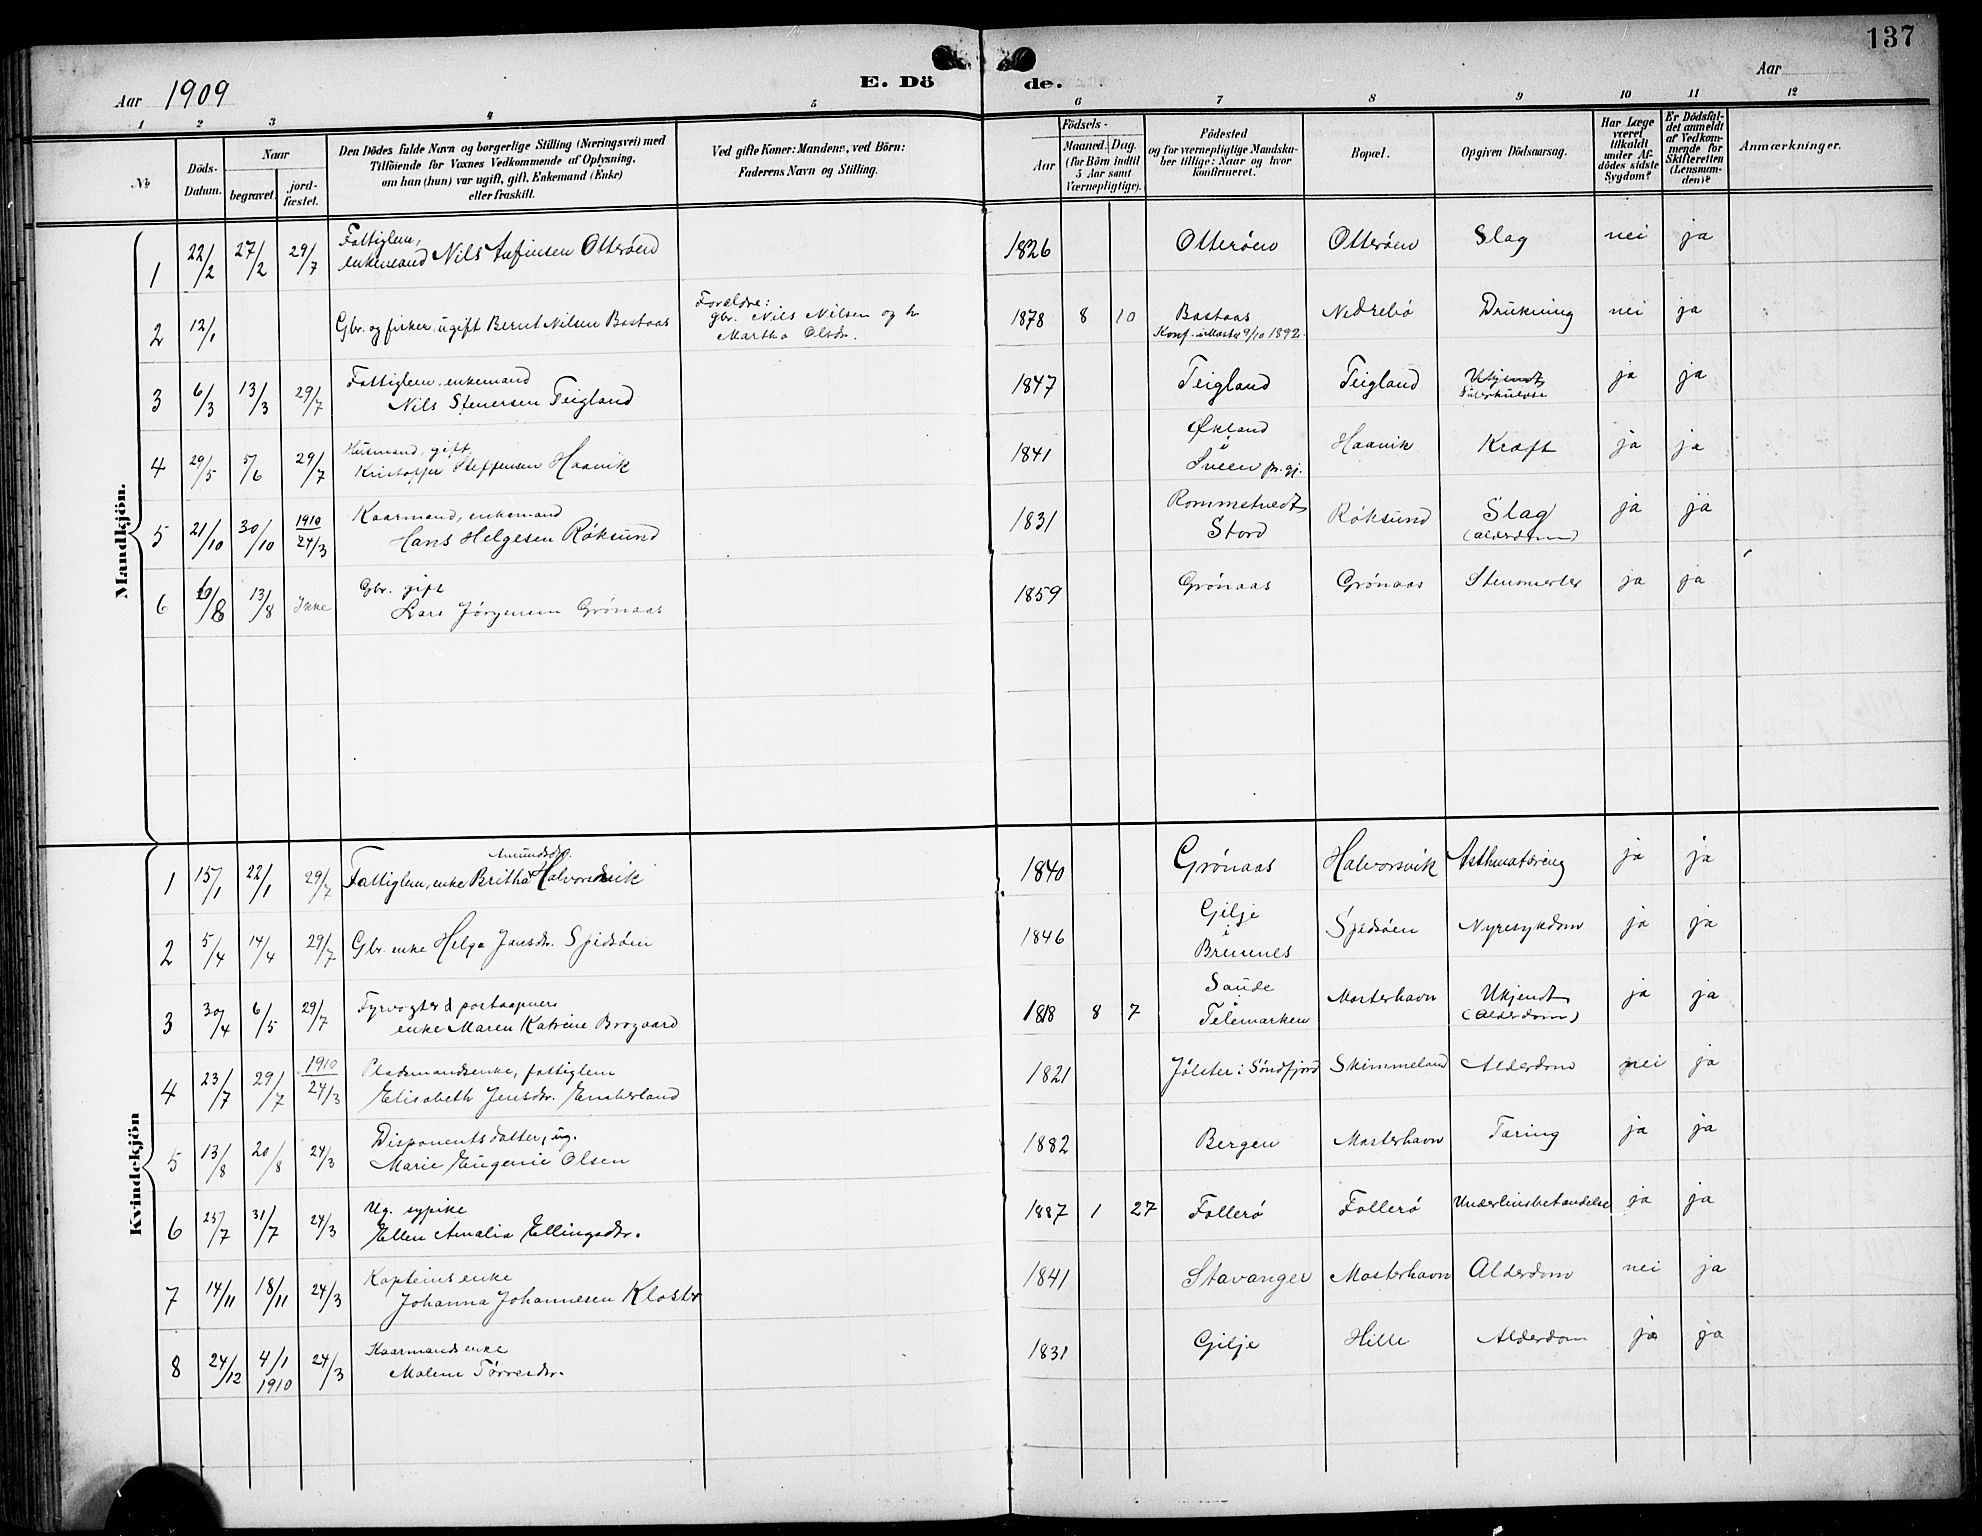 137
Aar 1909
E. Dö
de.
Aar
1 2 3 4 5 6 7 8 9 10 11 12
No
Döds-Datum.
Naar
begravet.
jord-fæstet.
Den Dödes fulde Navn og borgerlige Stilling (Næringsvei) med
Tilföiende for Voxnes Vedkommende af Oplysning,
om han (hun) var ugift, gift, Enkemand (Enke)
eller fraskilt.
Ved gifte Koner: Mandens, ved Börn:
Faderens Navn og Stilling.
Födsels-
Aar
Maaned. Dag.
(for Börn indtil
5 Aar samt
Værnepligtige).
Födested
og for værnepligtige Mandska-
ber tillige: Naar og hvor
konfirmeret.
Bopæl.
Opgiven Dödsaarsag.
Har Læge
været
tilkaldt
under Af-
dödes sidste
Sygdom?
Er Dödsfal-
det anmeldt
af Vedkom-
mende for
Skifteretten
(Lensman-
den)?
Anmærkninger.
Mandkjön.
1 22/2 27/2 29/7 Fattiglem, enkemand Nils Anfinsen Otterøen 1826 Otterøen Otterøen Slag nei ja
2 12/1 Gbr. og fisker, ugift Bernt Nilsen Bastaas Forældre: gbr. Nils Nilsen og h. Martha Olsdr. 1878 8 10 Bastaas Konf. i Moster 9/10 1892. Nedrebø Drukning nei ja
3 6/3 13/3 29/7 Fattiglem, enkemand Nils Stenersen Teigland 1847 Teigland Teigland Ukjendt Tuberkulose ja ja
4 29/5 5/6 29/7 Husmand, gift Kristoffer Steffensen Haavik 1841 Økland i Sveen pr.gj. Haavik Kræft ja ja
5 21/10 30/10 1910 24/3 Kaarmand, enkemand Hans Helgesen Røksund 1831 Rommetvedt Stord Røksund Slag (alderdom) ja ja
6 6/8 13/8 Ikke Gbr. gift Lars Jørgensen Grønaas 1859 Grønaas Grønaas Stensmerter ja ja
Kvindekjön
1 15/1 22/1 29/7 Fattiglem, enke Britha Amundsdr. Halvorsvik 1840 Grønaas Halvorsvik Asthmatæring ja ja
2 5/4 14/4 29/7 Gbr. enke Helga Jansdr. Spidsøen 1846 Gilje i Bremnes Spidsøen Nyresykdom ja ja
3 30/4 6/5 29/7 Fyrvogter & postaapners enke Maren Katrine Brogaard 1818 8 7 Saude i Telemarken Mosterhavn Ukjendt (Alderdom) ja ja
4 23/7 29/7 1910 24/3 Pladsmandsenke, fattiglem Elisabeth Jensdr. Engberland 1821 Jølster i Søndfjord Skimmeland Alderdom nei ja
5 13/8 20/8 24/3 Disponents datter, ug. Marie Eugenie Olsen 1882 Bergen Mosterhavn Tæring ja ja
6 25/7 31/7 24/3 Ug. sypike Ellen Amalia Ellingsdr. 1887 1 27 Follerø Follerø Underlivsbetændelse ja ja
7 14/11 18/11 24/3 Kapteins enke Johanna Johannesen Kloster 1841 Stavanger Mosterhavn Alderdom nei ja
8 24/12 4/1 1910 24/3 Kaarmands enke Malene Tørresdr. 1831 Gilje Hille Alderdom ja ja